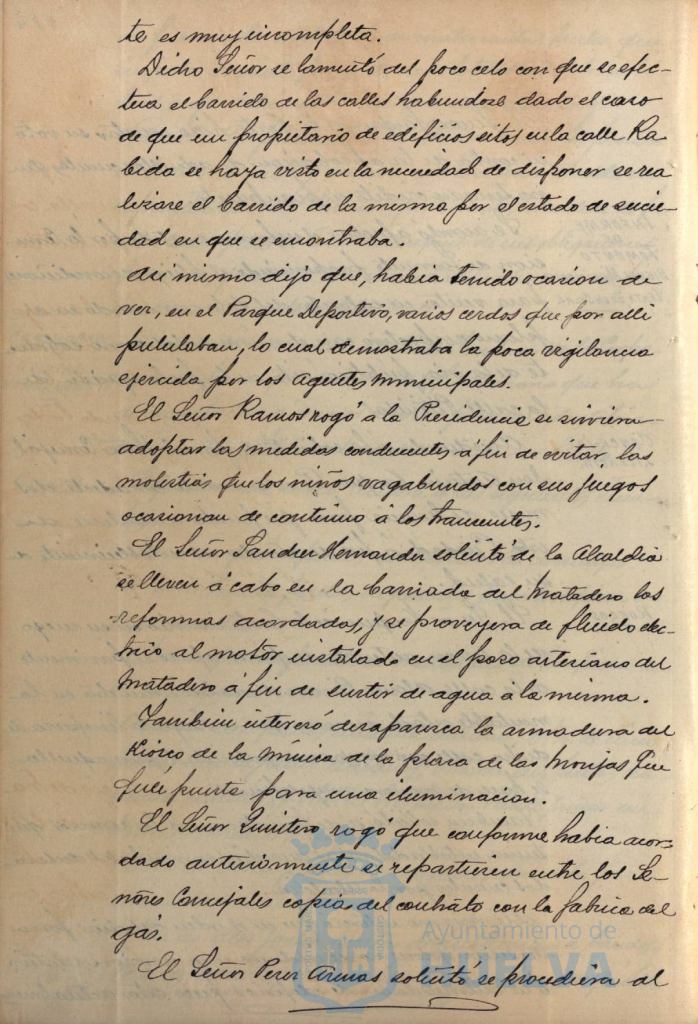 te es muy incompleta.
Dicho Señor se lamentó del poco celo con que se efec-
tua el barrido de las calles habiendose dado el caso
de que un propietario de edificios sitos en la calle Ra
bida se haya visto en la necesidad de disponer se rea
lizase el barrido de la misma por el estado de sucie-
dad en que se encontraba.
Asi mismo dijo que, habia tenido ocasion de
ver, en el Parque Deportivo, varios cerdos que por alli
pululaban, lo cual demostraba la poca vigilancia
ejercida por los Agentes Municipales.
El Señor Ramos rogó a la Presidencia se sirviera
adoptar las medidas conducentes á fin de evitar las
molestias que los niños vagabundos con sus juegos
ocasionan de continuo á los transeuntes.
El Señor Sanchez Hernandez solicitó de la Alcaldia
se lleven á cabo en la barriada del Matadero las
reformas acordadas, y se proveyera de fluido elec-
trico al motor instalado en el pozo artesiano del
Matadero á fin de surtir de agua á la misma.
Tambien interesó desaparezca la armadura del
Kiosco de la Música de la plaza de las Monjas que
fué puesta para una iluminacion.
El Señor Quintero rogó que conforme habia acor-
dado anteriormente se repartieren entre los Se-
ñores Concejales copias del contrato con la fabrica del
gas.
El Señor Perez Armas solicitó se procediera al
Ayuntamiento de
HUELVA